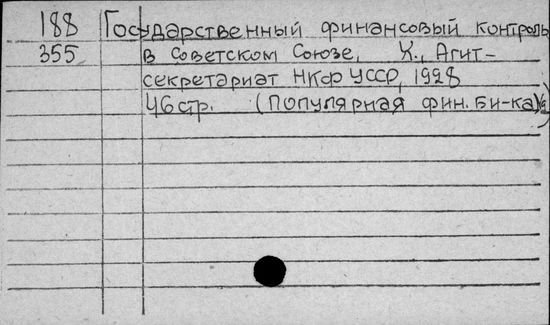 188 Государственный финансовый контроль
355 в Советском Союзе, Х., Агит-
секретариат НКФ УССР, 1928
46 стр. (Популярная фин. би-ка)